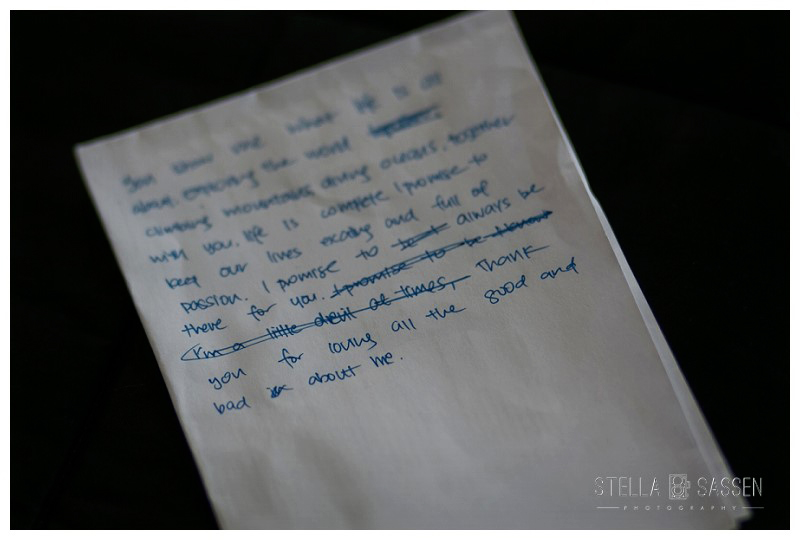 you show me what life is all
about, exploring the world
climbing mountains diving oceans, together
with you, life is complete I promise to
keep our lives exciting and full of
passion. I promise to always be
there for you. I promise to be
I'm a little devil at times, Thank
you for loving all the good and
bad about me.
STELLA & SASSEN
PHOTOGRAPHY